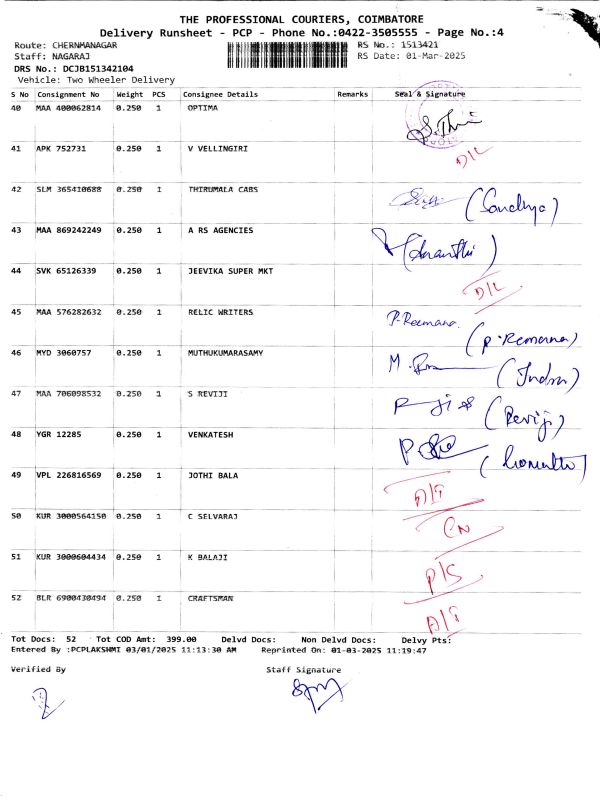 THE PROFESSIONAL COURIERS, COIMBATORE
Delivery Runsheet - PCP - Phone No.:0422-3505555 - Page No.:4
Route: CHERNMANAGAR
RS No.: 1513421
Staff: NAGARAJ
RS Date: 01-Mar-2025
DRS No.: DCJB151342104
Vehicle: Two Wheeler Delivery
S No Consignment No Weight PCS Consignee Details Remarks Seal & Signature
40 MAA 400062814 0.250 1 OPTIMA
41 APK 752731 0.250 1 V VELLINGIRI D/L
42 SLM 365410688 0.250 1 THIRUMALA CABS (Sandhya)
43 MAA 869242249 0.250 1 A RS AGENCIES
44 SVK 65126339 0.250 1 JEEVIKA SUPER MKT D/L
45 MAA 576282632 0.250 1 RELIC WRITERS P. Reemana. (P. Remana)
46 MYD 3060757 0.250 1 MUTHUKUMARASAMY (Indra)
47 MAA 706098532 0.250 1 S REVIJI (Reviji)
48 YGR 12285 0.250 1 VENKATESH
49 VPL 226816569 0.250 1 JOTHI BALA
50 KUR 3000564150 0.250 1 C SELVARAJ CN
51 KUR 3000604434 0.250 1 K BALAJI P/S
52 BLR 6900430494 0.250 1 CRAFTSMAN
Tot Docs: 52 Tot COD Amt: 399.00 Delvd Docs: Non Delvd Docs: Delvy Pts:
Entered By :PCPLAKSHMI 03/01/2025 11:13:30 AM Reprinted On: 01-03-2025 11:19:47
Verified By Staff Signature